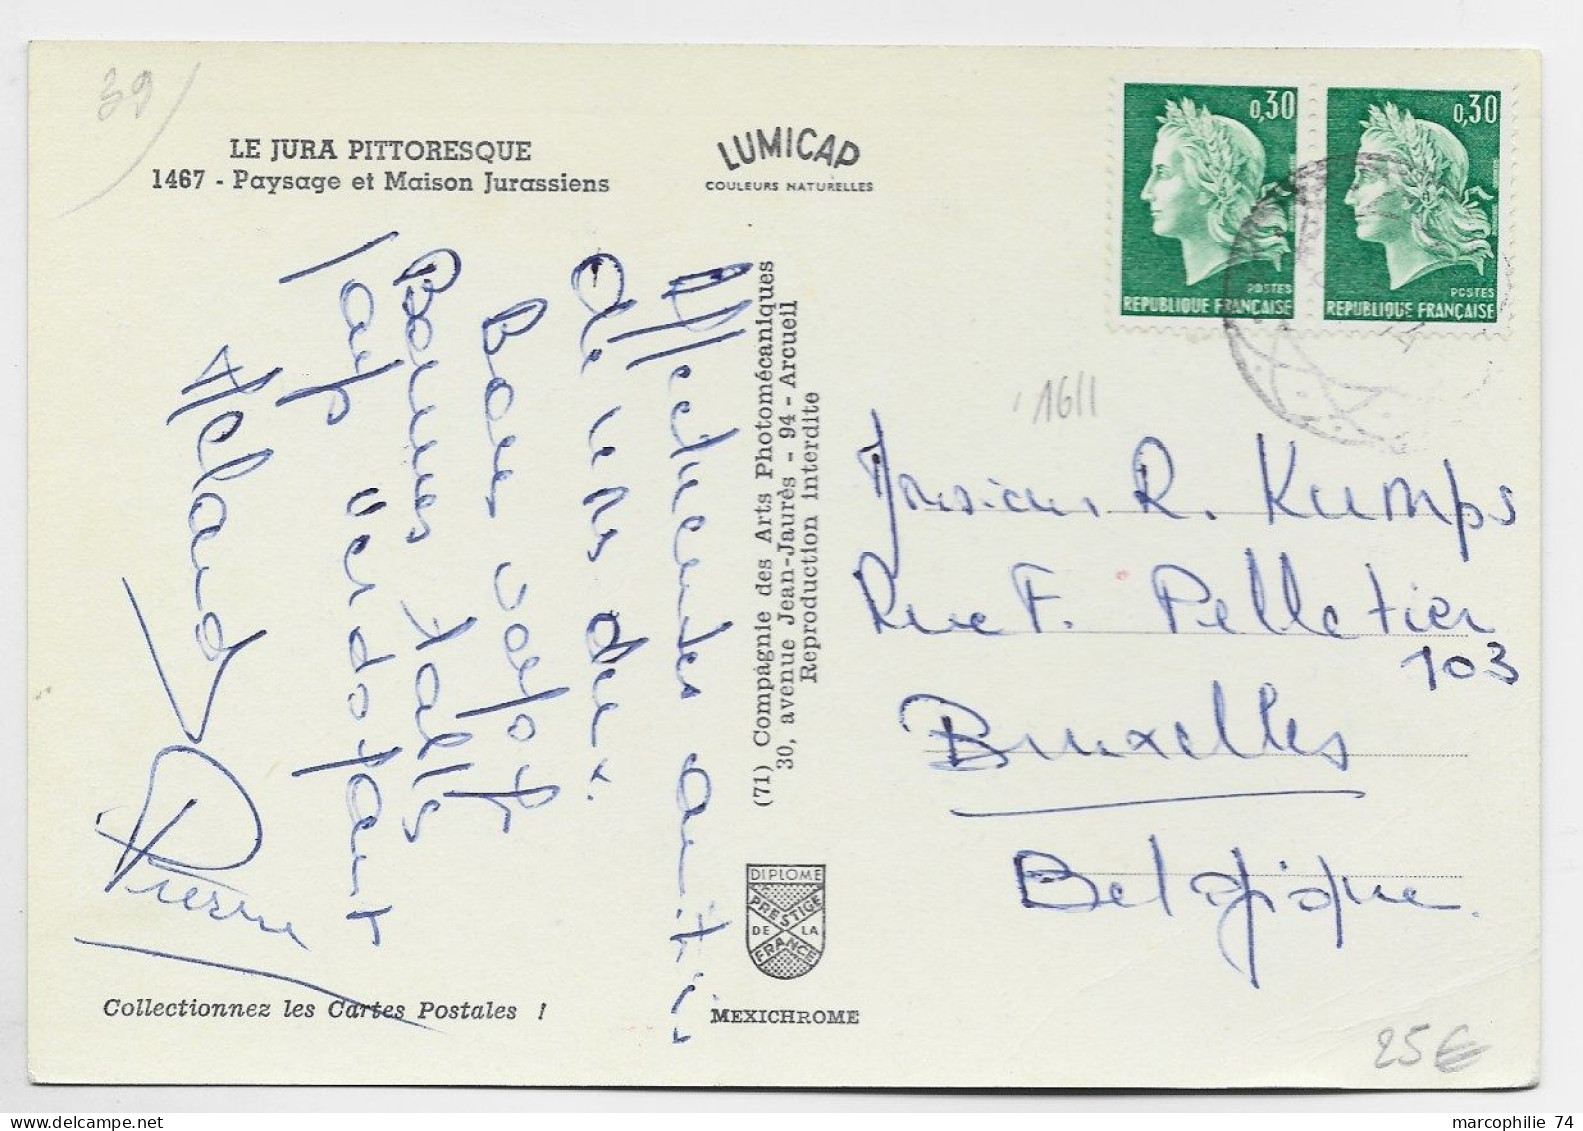 39
LE JURA PITTORESQUE
1467 - Paysage et Maison Jurassiens
LUMICAP
COULEURS NATURELLES
0,30
POSTES
REPUBLIQUE FRANÇAISE
0,30
POSTES
REPUBLIQUE FRANÇAISE
1611
Affectueuses amitiés
à vous deux.
Bons
Bonnes
Pierre
(71) Compagnie des Arts Photomécaniques
30, avenue Jean-Jaurès - 94 - Arcueil
Reproduction interdite
Monsieur R. Kumps
Rue F. Pelletier
103
Bruxelles
Belgique.
DIPLOME
PRESTIGE
DE LA
FRANCE
MEXICHROME
Collectionnez les Cartes Postales !
25€
marcophilie 74